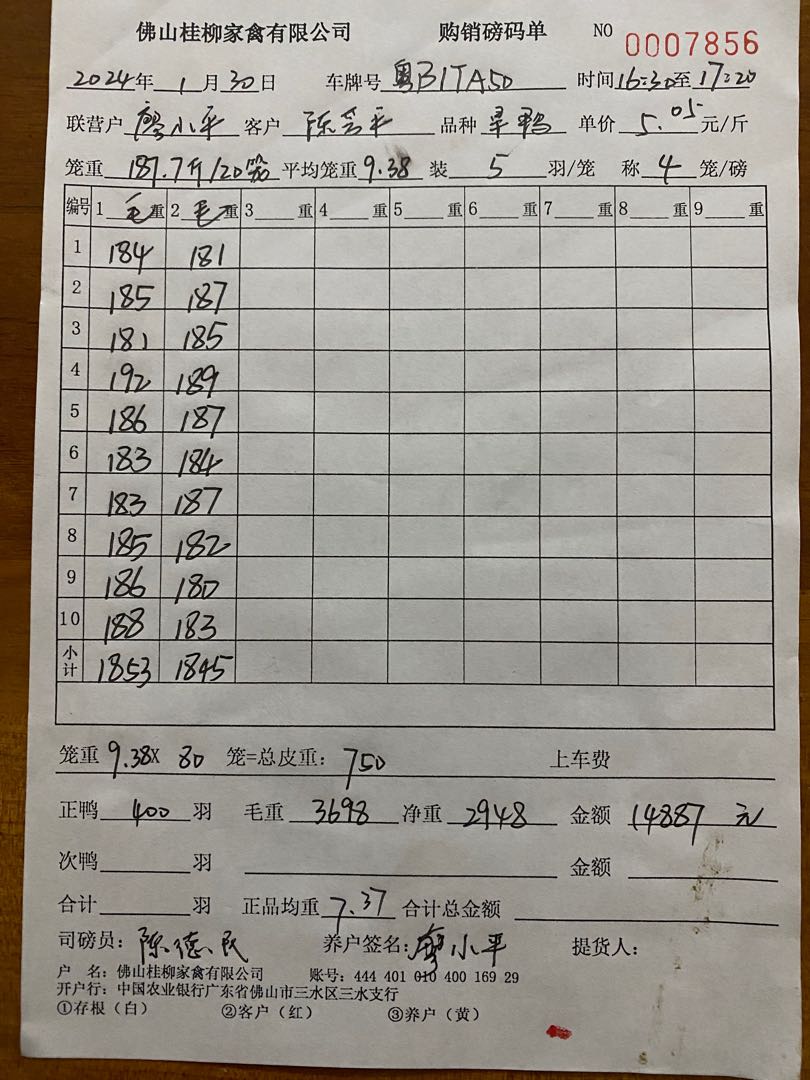 佛山桂柳家禽有限公司 购销磅码单 NO 0007856
2024年 1月30日 车牌号 粤B1TA50 时间16:30至17:20
联营户 廖小平 客户 陈 平 品种 旱鸭 单价 5.05 元/斤
笼重 187.7斤/20笼 平均笼重9.38 装 5 羽/笼 称 4 笼/磅
编号 1 毛 重 2 毛 重 3 重 4 重 5 重 6 重 7 重 8 重 9 重
1 184 181
2 185 187
3 181 185
4 192 189
5 186 187
6 183 184
7 183 187
8 185 182
9 186 180
10 188 183
小计 1853 1845
笼重 9.38 X 80 笼=总皮重: 750 上车费
正鸭 400 羽 毛重 3698 净重 2948 金额 14887 元
次鸭 羽 金额
合计 羽 正品均重 7.37 合计总金额
司磅员: 陈德民 养户签名: 廖小平 提货人:
户 名: 佛山桂柳家禽有限公司 账号: 444 401 010 400 169 29
开户行: 中国农业银行广东省佛山市三水区三水支行
①存根(白) ②客户(红) ③养户(黄)